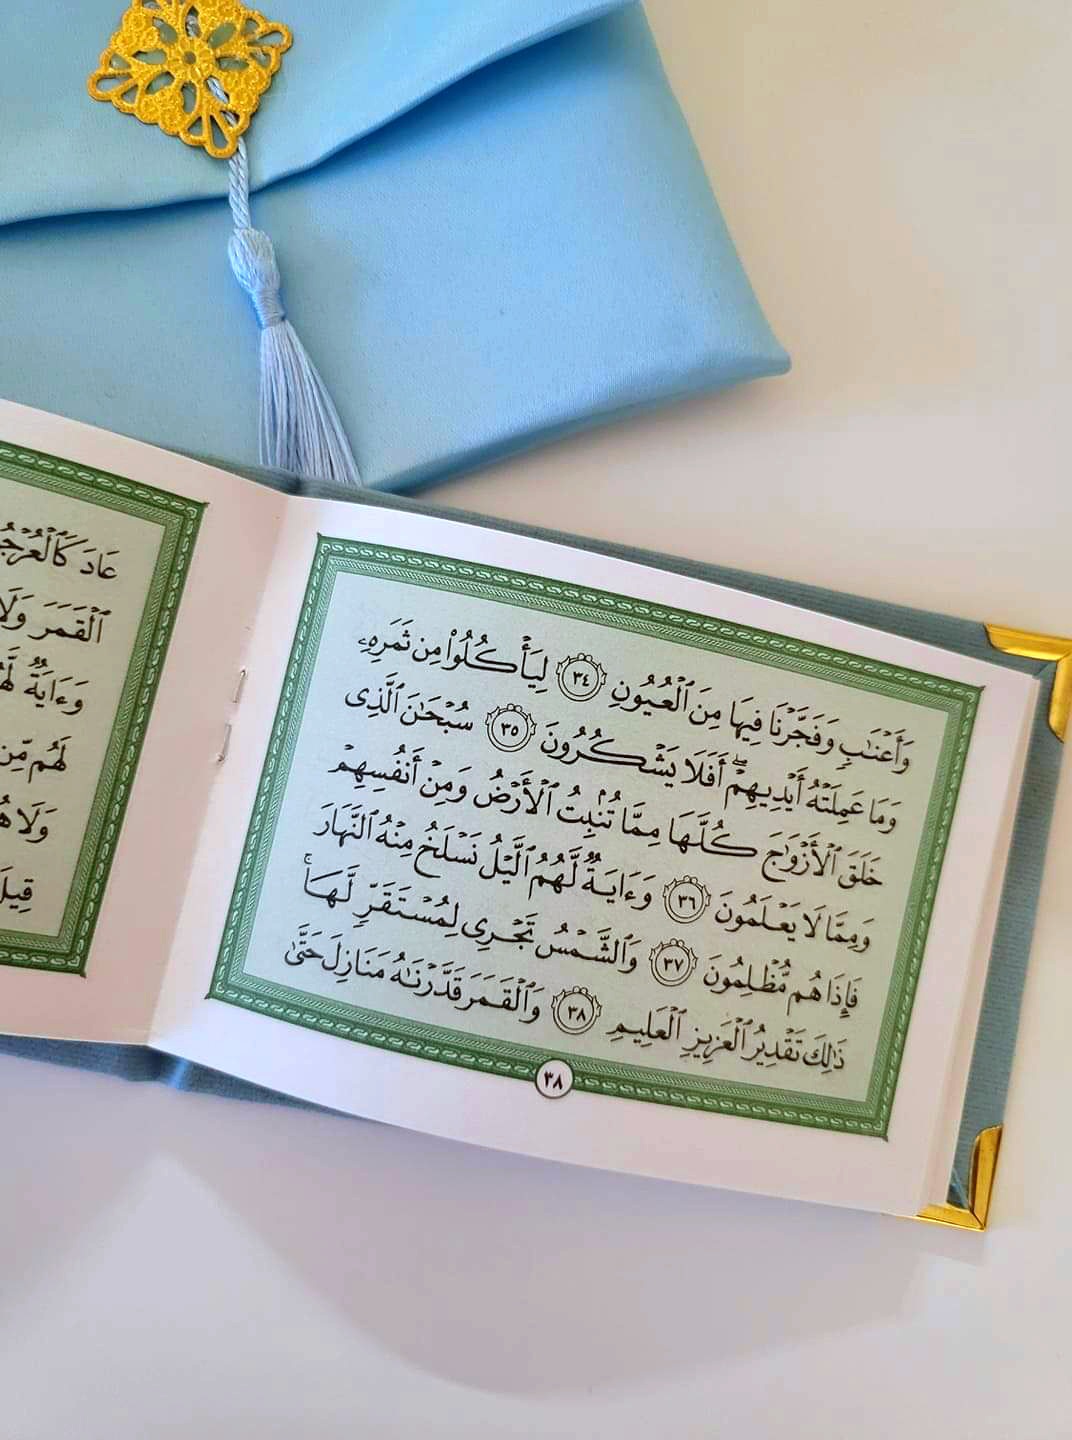 وَأَعْنَٰبٍ وَفَجَّرْنَا فِيهَا مِنَ ٱلْعُيُونِ ٣٤ لِيَأْكُلُوا۟ مِن ثَمَرِهِۦ
وَمَا عَمِلَتْهُ أَيْدِيهِمْ ۖ أَفَلَا يَشْكُرُونَ ٣٥ سُبْحَٰنَ ٱلَّذِى
خَلَقَ ٱلْأَزْوَٰجَ كُلَّهَا مِمَّا تُنۢبِتُ ٱلْأَرْضُ وَمِنْ أَنفُسِهِمْ
وَمِمَّا لَا يَعْلَمُونَ ٣٦ وَءَايَةٌ لَّهُمُ ٱلَّيْلُ نَسْلَخُ مِنْهُ ٱلنَّهَارَ
فَإِذَا هُم مُّظْلِمُونَ ٣٧ وَٱلشَّمْسُ تَجْرِى لِمُسْتَقَرٍّ لَّهَا ۚ
ذَٰلِكَ تَقْدِيرُ ٱلْعَزِيزِ ٱلْعَلِيمِ ٣٨ وَٱلْقَمَرَ قَدَّرْنَٰهُ مَنَازِلَ حَتَّىٰ
٣٨
عَادَ
ٱلْقَمَرَ وَلَا
وَءَايَةٌ
لَهُم مِّن
وَلَا
قِيلَ